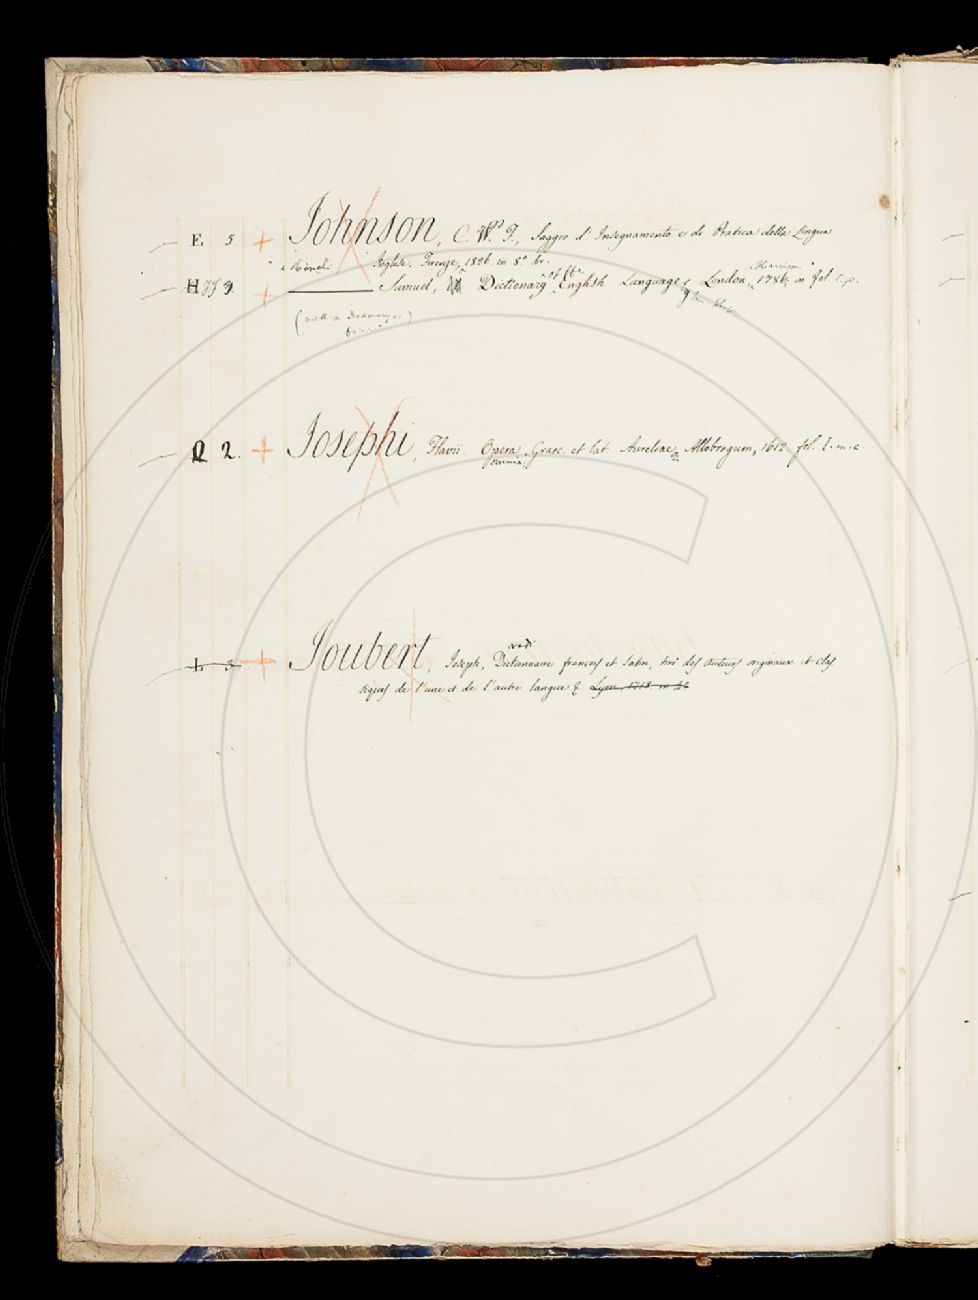 E 5. Johnson, C. W.m J., Saggio d'Insegnamento e di Pratica della Lingua
Inglese. Firenze, 1826 in 8.o br.
H 9 Samuel, Dictionary of the English Language, London, Harrison 1786, in fol.
(with a
Q 2. Josephi, Flavii. Opera omnia, Graec. et lat. Aureliae Allobrogum, 1612. fol.
L 3 Joubert, Joseph, Dictionnaire françois et latin, tiré des auteurs originaux et clas
siques de l'une et de l'autre langue & Lyon 1718 in